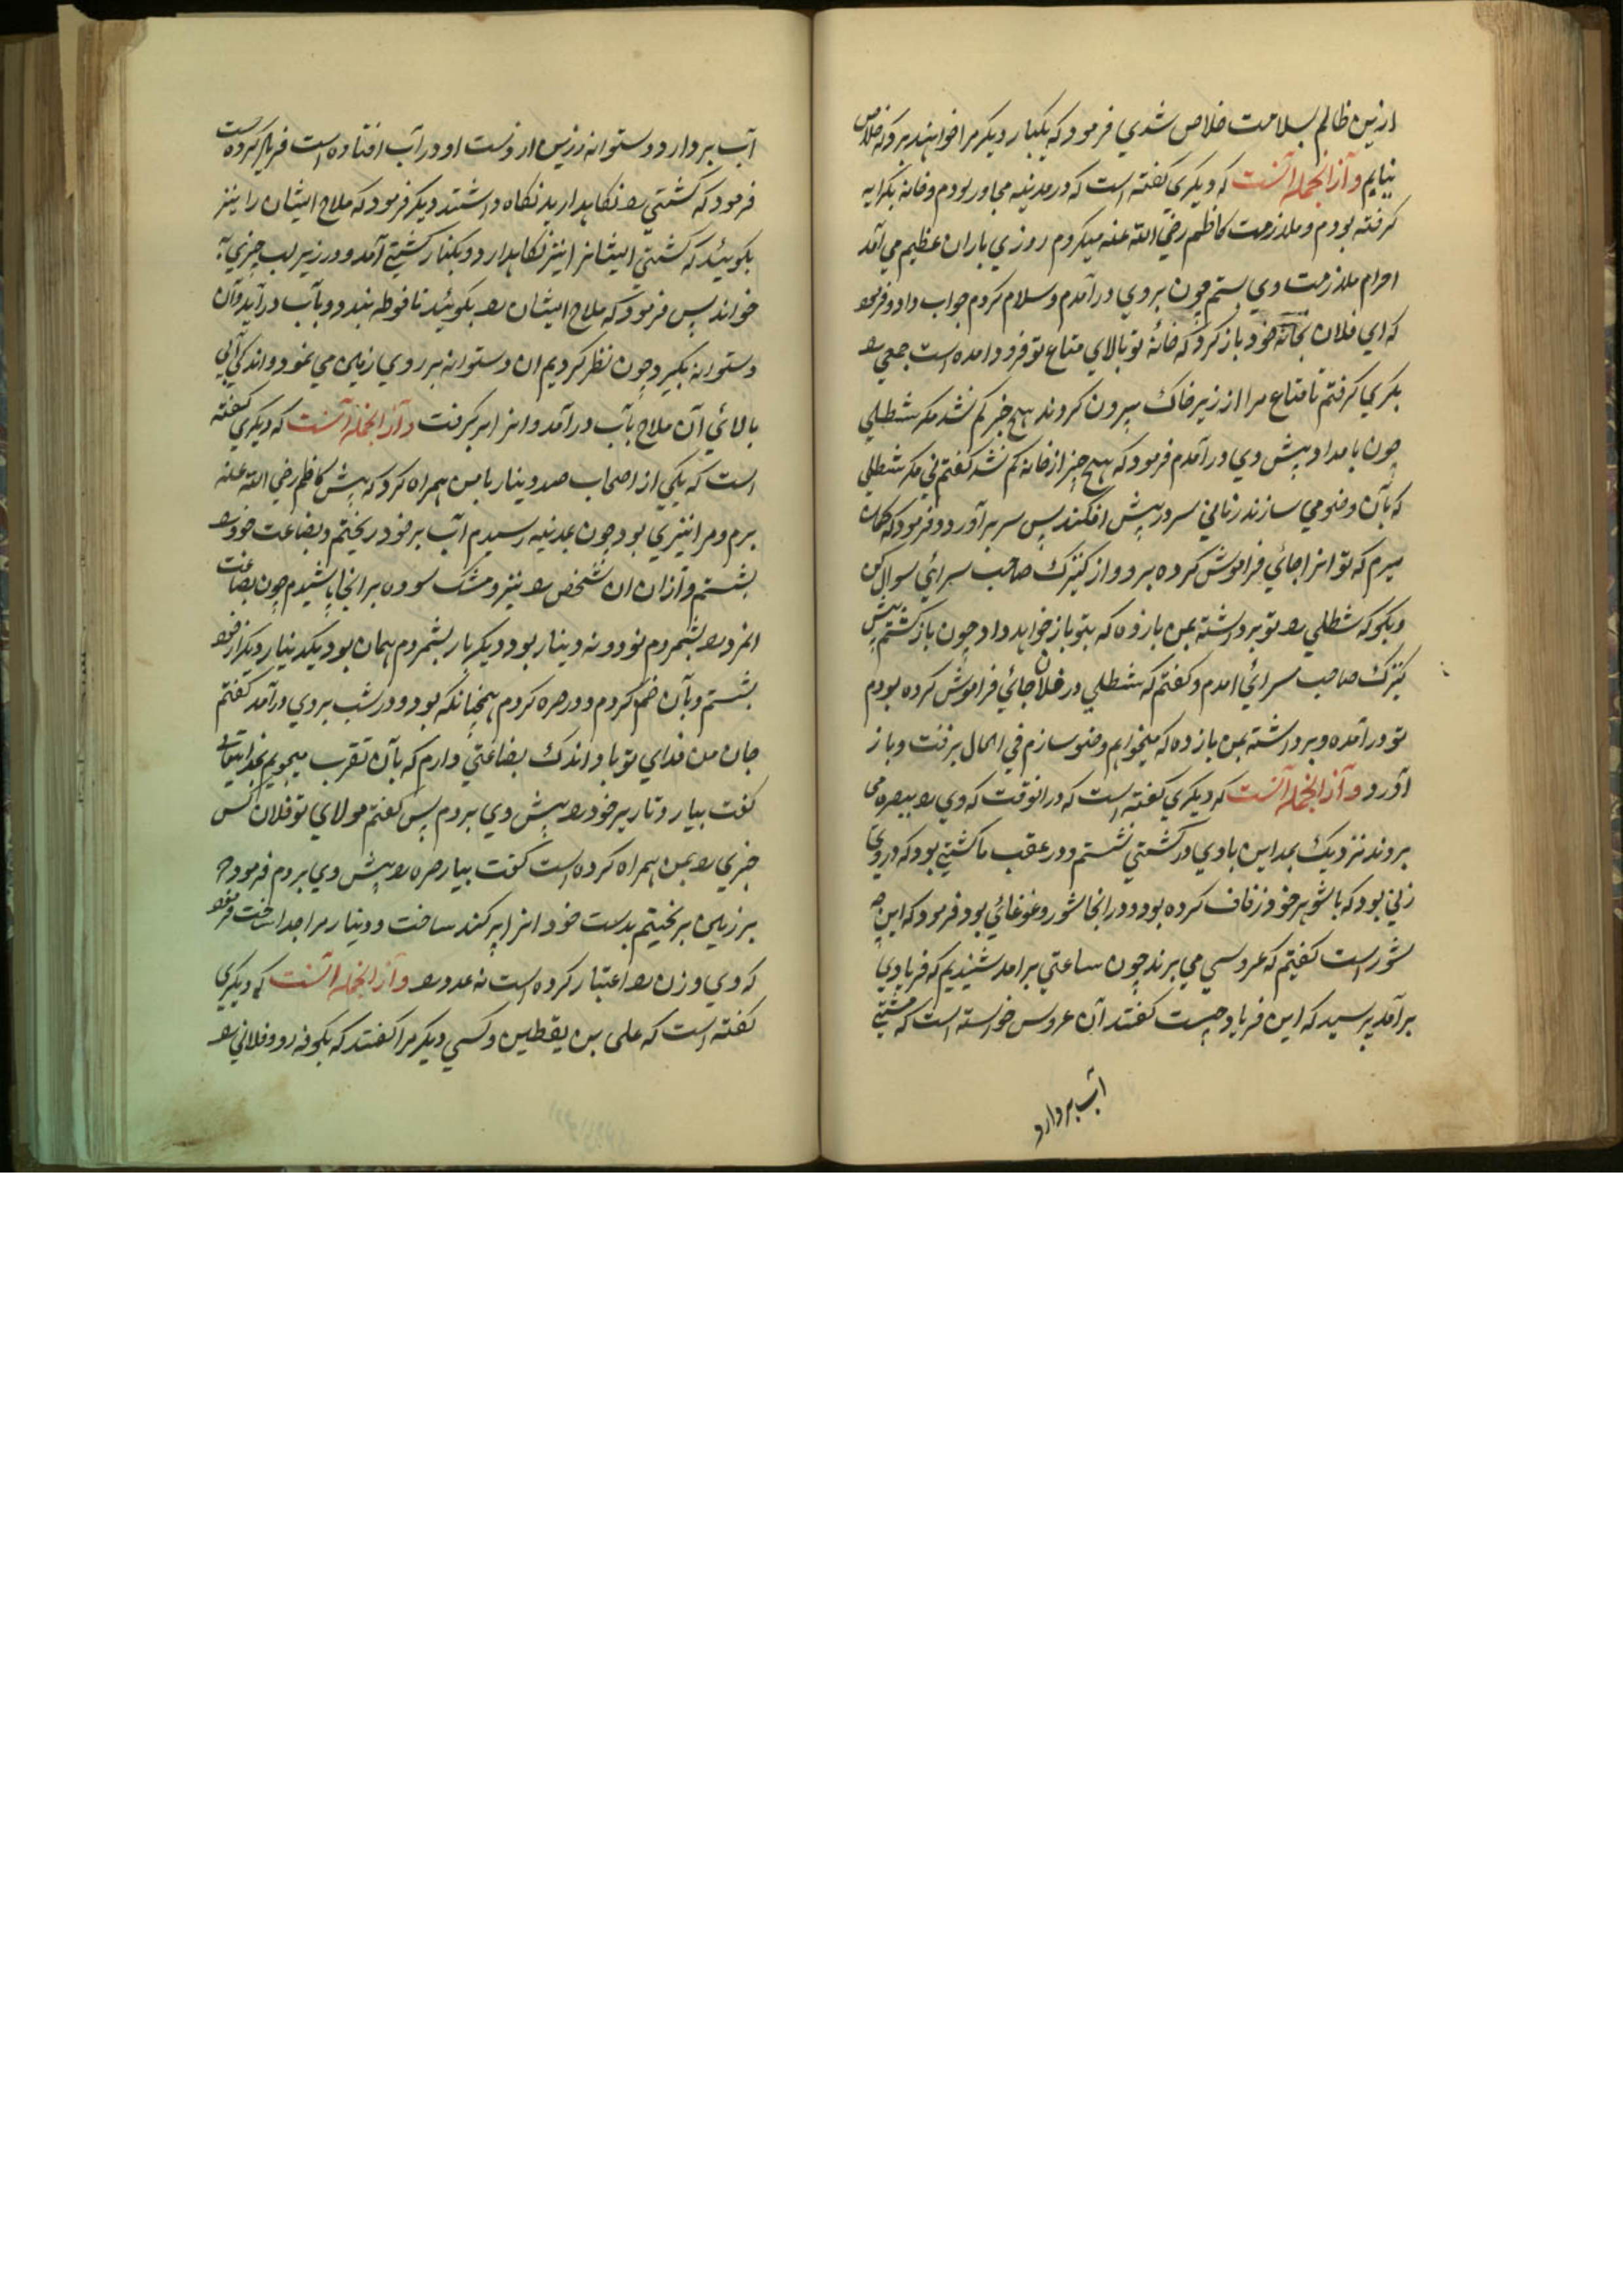 ازین ظالم بسلامت خلاص شدی فرمود که یکبار دیگر مرا خواهند برد که خلاص
نیابم و از انجمله آنست که دیگری گفته است که در مدینه مجاور بودم و خانه بکرایه
گرفته بودم و ملازمت کاظم رضی الله عنه میکردم روزی باران عظیم می آمد
احرام ملازمت وی بستم چون بر وی درآمدم و سلام کردم جواب داد و فرمود
که ای فلان بخانه خود باز گرد که خانه تو بالای متاع تو فرود آمده است جمعی را
بکری گرفتم تا متاع مرا از زیر خاک بیرون کردند هیچ چیز کم نشد مگر سطلی
چون بامداد پیش وی درآمدم فرمود که هیچ چیز از خانه کم نشد گفتم نی مگر سطلی
که بآن وضو می سازند زمانی سر در پیش افکند پس سر برآورد و فرمود که گمان
میبرم که تو انرا جائی فراموش کرده برو و از کنیزک صاحب سرائی سوال کن
و بگو که سطلی را تو برداشته بمن باز ده که بتو باز خواهد داد چون باز گشتم پیش
کنیزک صاحب سرائی امدم و گفتم که سطلی در فلان جائی فراموش کرده بودم
تو درآمده و برداشته بمن باز ده که میخواهم وضو سازم فی الحال برفت و باز
آورد و از انجمله آنست که دیگری گفته است که درانوقت که وی را ببصره می
بردند نزدیک بمداین با وی در کشتی نشستم و در عقب ما کشتی بود که در وی
زنی بود که با شوهر خود زفاف کرده بود و در انجا شور و غوغائی بود فرمود که این چه
شور است گفتیم که عروسی می برند چون ساعتی برامد شنیدیم که فریادی
برآمد پرسید که این فریاد چیست گفتند آن عروس خواسته است که مشتی
آب بردارد
آب بردارد دستوانه زرین از دست او در آب افتاده است فریاد کرده است
فرمود که کشتی را نگاهدارید نگاه داشتند دیگر فرمود که ملاح ایشان را نیز
بگوئید که کشتی ایشانرا نیز نگاهدارد و بکنار کشتی آمد و در زیر لب چیزی
خواند پس فرمود که ملاح ایشان را بگوئید تا فوطه بندد و بآب درآید و آن
دستوانه بگیرد چون نظر کردیم ان دستوانه بر روی زمین می نمود و اندکی آبی
بالائی آن ملاح بآب درآمد و انرا برگرفت و از انجمله آنست که دیگری گفته
است که یکی از اصحاب صد دینار بامن همراه کرد که پیش کاظم رضی الله عنه
برم و مرا نیز ی بود چون بمدینه رسیدم آب بر خود ریختم و بضاعت خود را
بشستم و از ان ان شخص را نیز و مشک سوده بر انجا پاشیدم چون بضاعت
انمرد را بشمردم نود و نه دینار بود دیگر بار بشمردم همان بود یکدینار دیگر از خود
بشستم و بآن ضم کردم و در صره کردم همچنانکه بود و در شب بر وی درآمد گفتم
جان من فدای تو باد اندک بضاعتی دارم که بآن تقرب میجویم بخدایتعالی
گفت بیار دنانیر خود را پیش وی بردم پس گفتم مولای تو فلان کس
چیزی را بمن همراه کرده است گفت بیار صره را پیش وی بردم فرمود که
بر زمین بریختم بدست خود انرا پراکنده ساخت و دینار مرا جدا ساخت فرمود
که وی وزن را اعتبار کرده است نه عدد را و از انجمله آنست که دیگری
گفته است که علی بن یقطین و کسی دیگر مرا گفتند که بکوفه رو و فلانی را